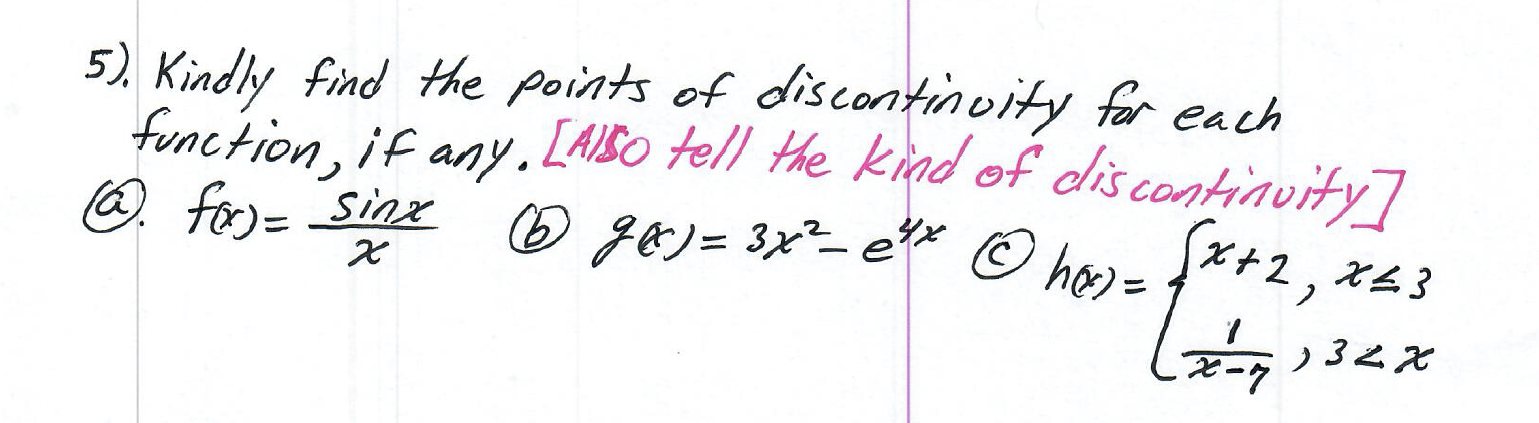 5). Kindly find the points of discontinuity for each
function, if any. [Also tell the kind of discontinuity]
ⓐ. f(x) = sinx / x ⓑ g(x) = 3x² - e⁴ˣ ⓒ h(x) = { x+2, x≤3
1 / x-7, 3<x